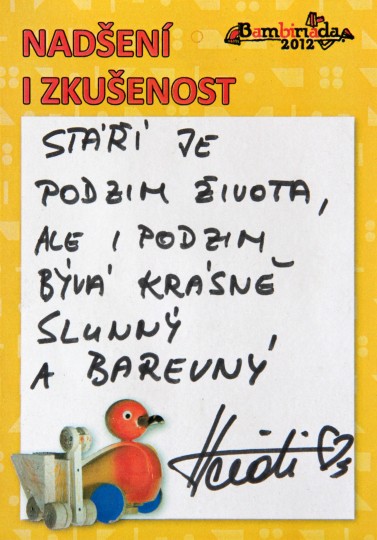 NADŠENÍ
I ZKUŠENOST
Bambiriáda
2012
STÁŘÍ JE
PODZIM ŽIVOTA,
ALE I PODZIM
BÝVÁ KRÁSNĚ
SLUNNÝ
A BAREVNÝ
Heidi